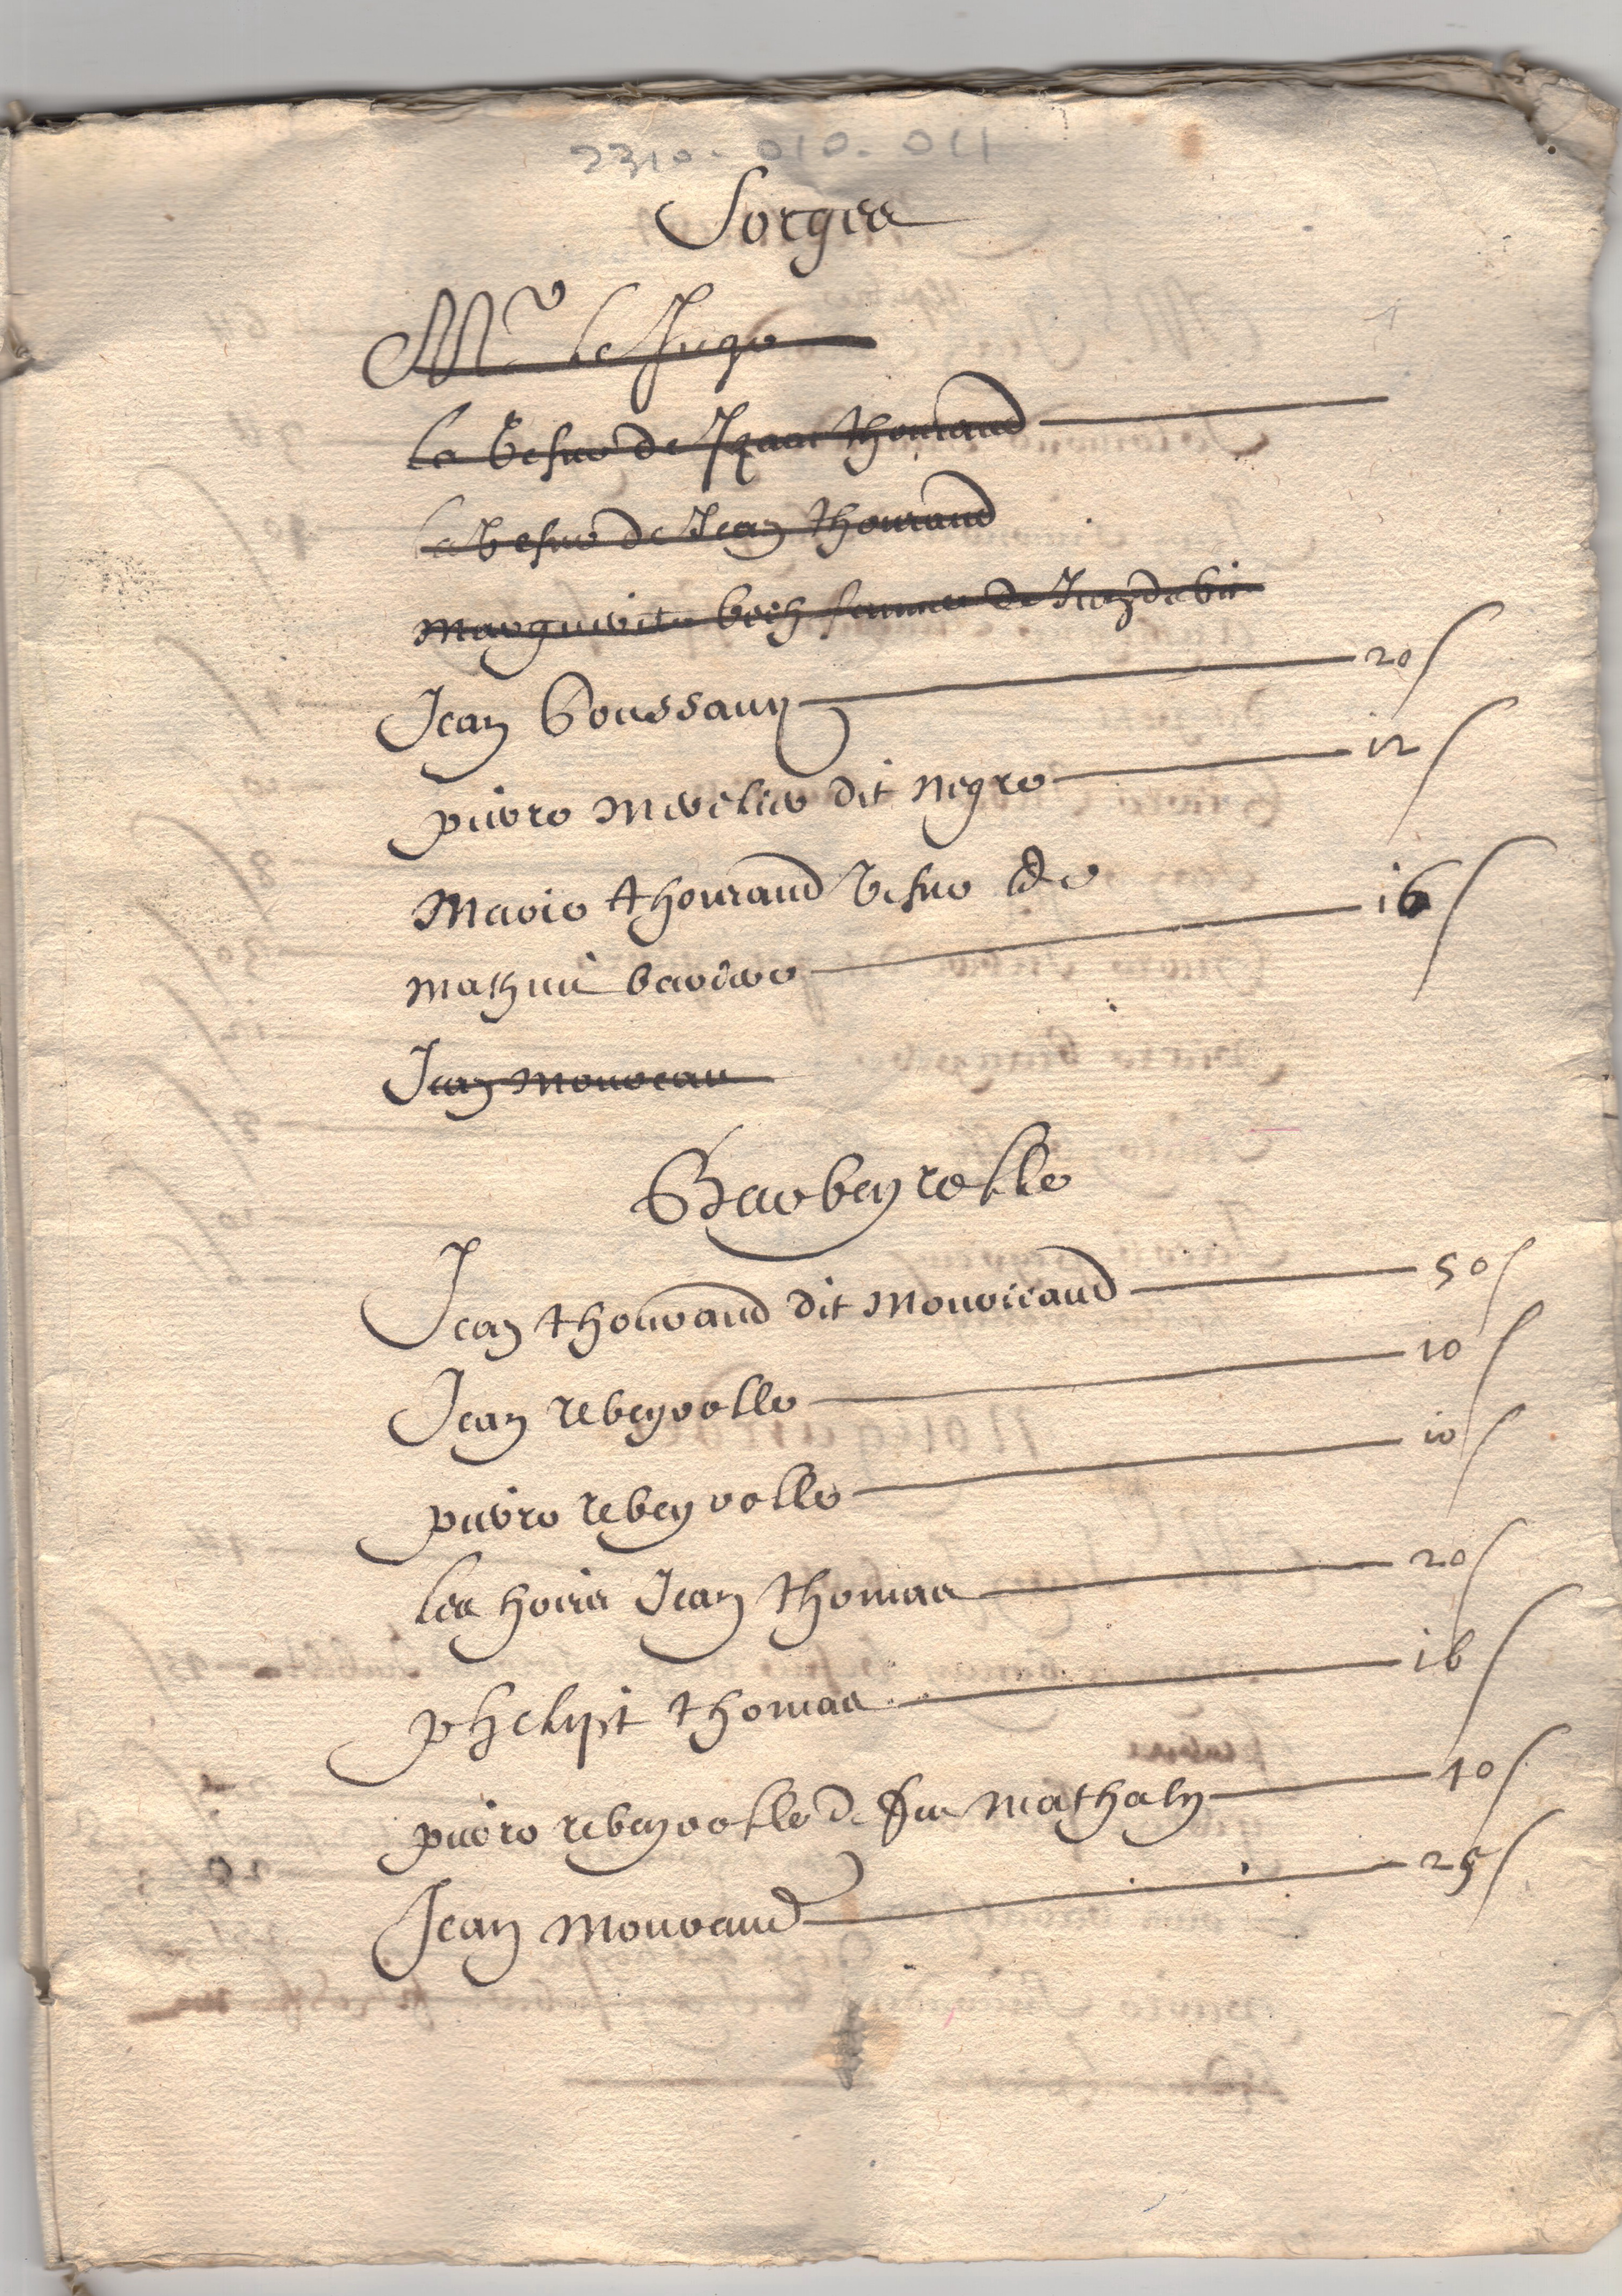 2310-010-011
Sorges
Mr le Juge
La Vefve de Izaac thouraud
La Vefve de Jean thouraud
Marguerite boch femme de
Jean Boussarie 20 s
pierre Merelier dit negre 12 s
Marie thouraud Vefve de
Mathiu bariere 16 s
Jean Moureau
Barbeyrolle
Jean thouraud dit Mouriceaud 50 s
Jean rebeyrolle 10 s
pierre rebeyrolle 10 s
Les hoirs Jean thomas 20 s
phelipt thomas 16 s
pierre rebeyrolle de feu Mathaly 40 s
Jean Mouraud 25 s